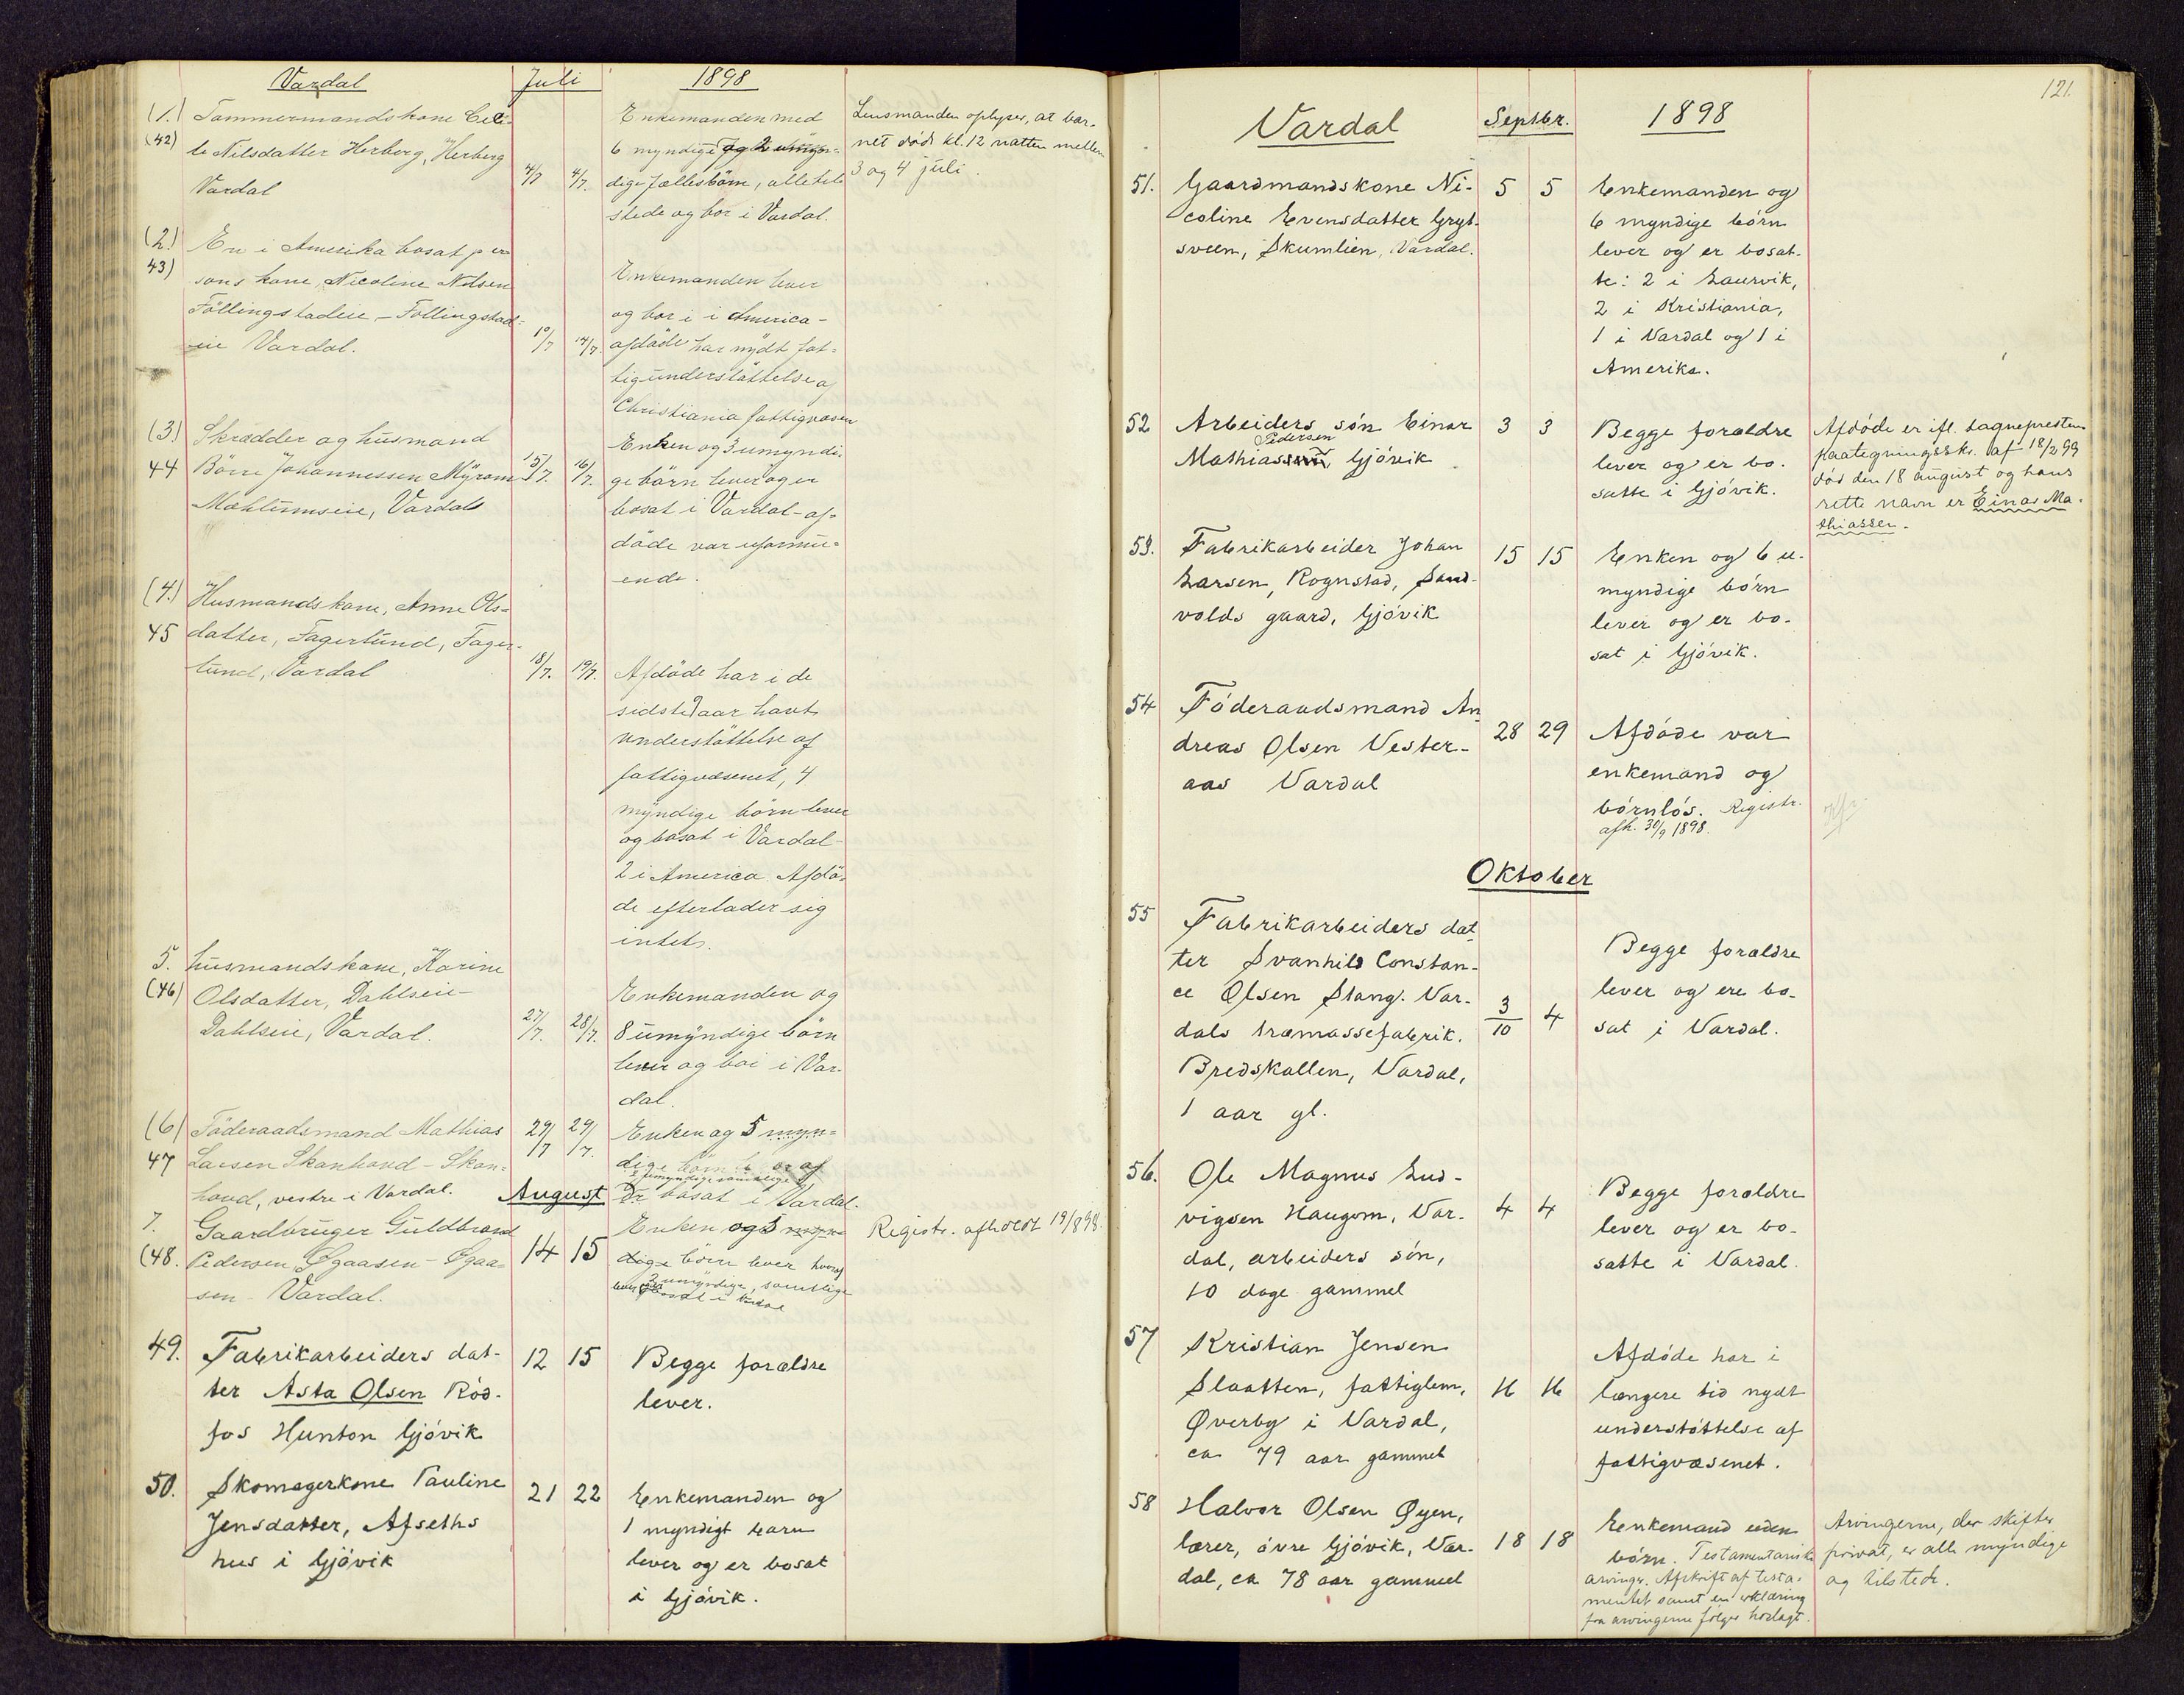 Vardal Juli 1898
(1.) Tømmermandskone Ceci-
(42) le Nilsdatter Herberg, Herberg
Vardal
4/7 4/7.
Enkemanden med
6 myndige og 2 umyn-
dige fællesbörn, alle tils
stede og bor i Vardal.
Lensmanden oplyser, at bar-
net døde kl. 12 natten mellem
3 og 4 juli.
(2.) En i Amerika bosat per
43) sons kone, Nicoline Nilsen
Föllingstadeie - Follingstad-
eie Vardal.
10/7 14/7.
Enkemanden lever
og bor i i America -
afdöde har nydt fat-
tigunderstöttelse af
Christiania fattigvæsen
(3.) Skrædder og husmand
44 Börre Johannessen Myrom
Mæhlumseie, Vardal
15/7. 16/7.
Enken og 3 umyndi-
ge börn lever og er
bosat i Vardal - af-
döde var uformu-
ende.
(4.) Husmandskone, Anne Ols-
45 datter, Fagerlund, Fager-
lund, Vardal
18/7. 19/7.
Afdöde har i de
sidste aar havt
understöttelse af
fattigvæsenet, 4
myndige börn lever
og bosat i Vardal -
2 i America. Afdö-
de efterlader sig
intet.
5. husmandskone, Karine
(46) Olsdatter, Dahlseie -
Dahlseie, Vardal.
27/7. 28/7.
Enkemanden og
8 umyndige börn
lever og boi i Var-
dal.
(6) Föderaadsmand Mathias
47 Larsen Skonhovd - Skon-
hovd, vestre i Vardal.
29/7 29/7.
Enken og 5 myn-
dige börn
bosat i Vardal.
August
7. Gaardbruger Guldbrand
(48. Pedersen Øgaasen - Øgaa-
sen - Vardal.
14 15
Enken og 5 myn-
dige börn lever hvoraf
3 umyndige, samtlige
bosat i Vardal
Registr. afholdt 19/8 98.
49. Fabrikarbeiders dat-
ter Asta Olsen Röd-
fos Hunton Gjövik
12 15
Begge forældre
lever.
50. Skomagerkone Pauline
Jensdatter, Afseths
hus i Gjövik
21 22
Enkemanden og
1 myndigt barn
lever og er bosat
i Gjövik.
121.
Vardal Septbr. 1898
51. Gaardmandskone Ni-
coline Evensdatter Gryt-
sveen, Skumlien, Vardal.
5 5
Enkemanden og
6 myndige börn
lever og er bosat-
te: 2 i Laurvik,
2 i Kristiania,
1 i Vardal og 1 i
Amerika.
52 Arbeiders sön Einar
Pedersen
Mathiassen, Gjövik
3 3
Begge forældre
lever og er bo-
satte i Gjövik.
Afdöde er ifl. sogneprestens
paategningsskr. af 18/2 99
död den 18 august og hans
rette navn er Einar Ma-
thiassen.
53. Fabrikarbeider Johan
Larsen, Rognstad, Sand-
volds gaard, Gjövik
15 15
Enken og 6 u-
myndige börn
lever og er bo-
sat i Gjövik.
54 Föderaadsmand An
dreas Olsen Vester-
aas Vardal
28 29
Afdöde var
enkemand og
börnlös. Registr.
afh. 30/9 1898.
Oktober
55 Fabrikarbeiders dat
ter Svanhild Constan-
ce Olsen Stang. Var-
dals træmassefabrik.
Bredskallen, Vardal,
1 aar gl.
3/10 4
Begge forældre
lever og ere bo-
sat i Vardal.
56. Ole Magnus Lud-
vigsen Haugom, Var-
dal, arbeiders sön,
10 dage gammel
4 4
Begge forældre
lever og er bo-
satte i Vardal.
57 Kristian Jensen
Slaatten, fattiglem,
Øverby i Vardal,
ca 79 aar gammel
16 16
Afdöde har i
længere tid nydt
understöttelse af
fattigvæsenet.
58 Halvor Olsen Øyen,
lærer, övre Gjövik, Var-
dal, ca 78 aar gammel
18 18
Enkemand uden
börn. Testamentariske
arvinger. Afskrift af testa-
mentet samt en erklæring
fra arvingerne fölger hoslagt.
Arvingerne, der skifter
privat, er alle myndige
og tilstede.